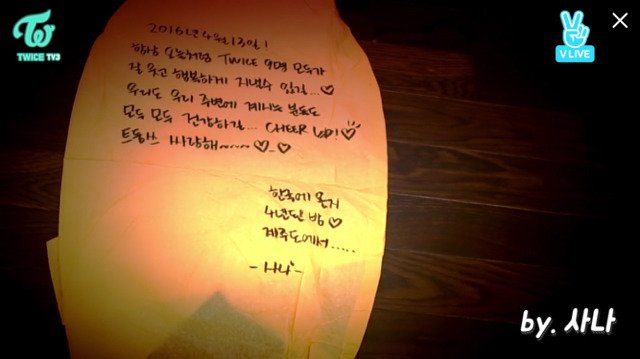 TWICE TV3
V LIVE
2016년 4월 13일!
항상 오늘처럼 TWICE 9명 모두가
잘 웃고 행복하게 지낼수 있길...♡
우리도 우리 주변에 계시는 분들도
모두 모두 건강하길... CHEER UP!♡
트둥쓰 싸랑해~~~~ ♡_♡
한국에 온지
4년된 밤♡
제주도에서.....
-사나-
by. 사나